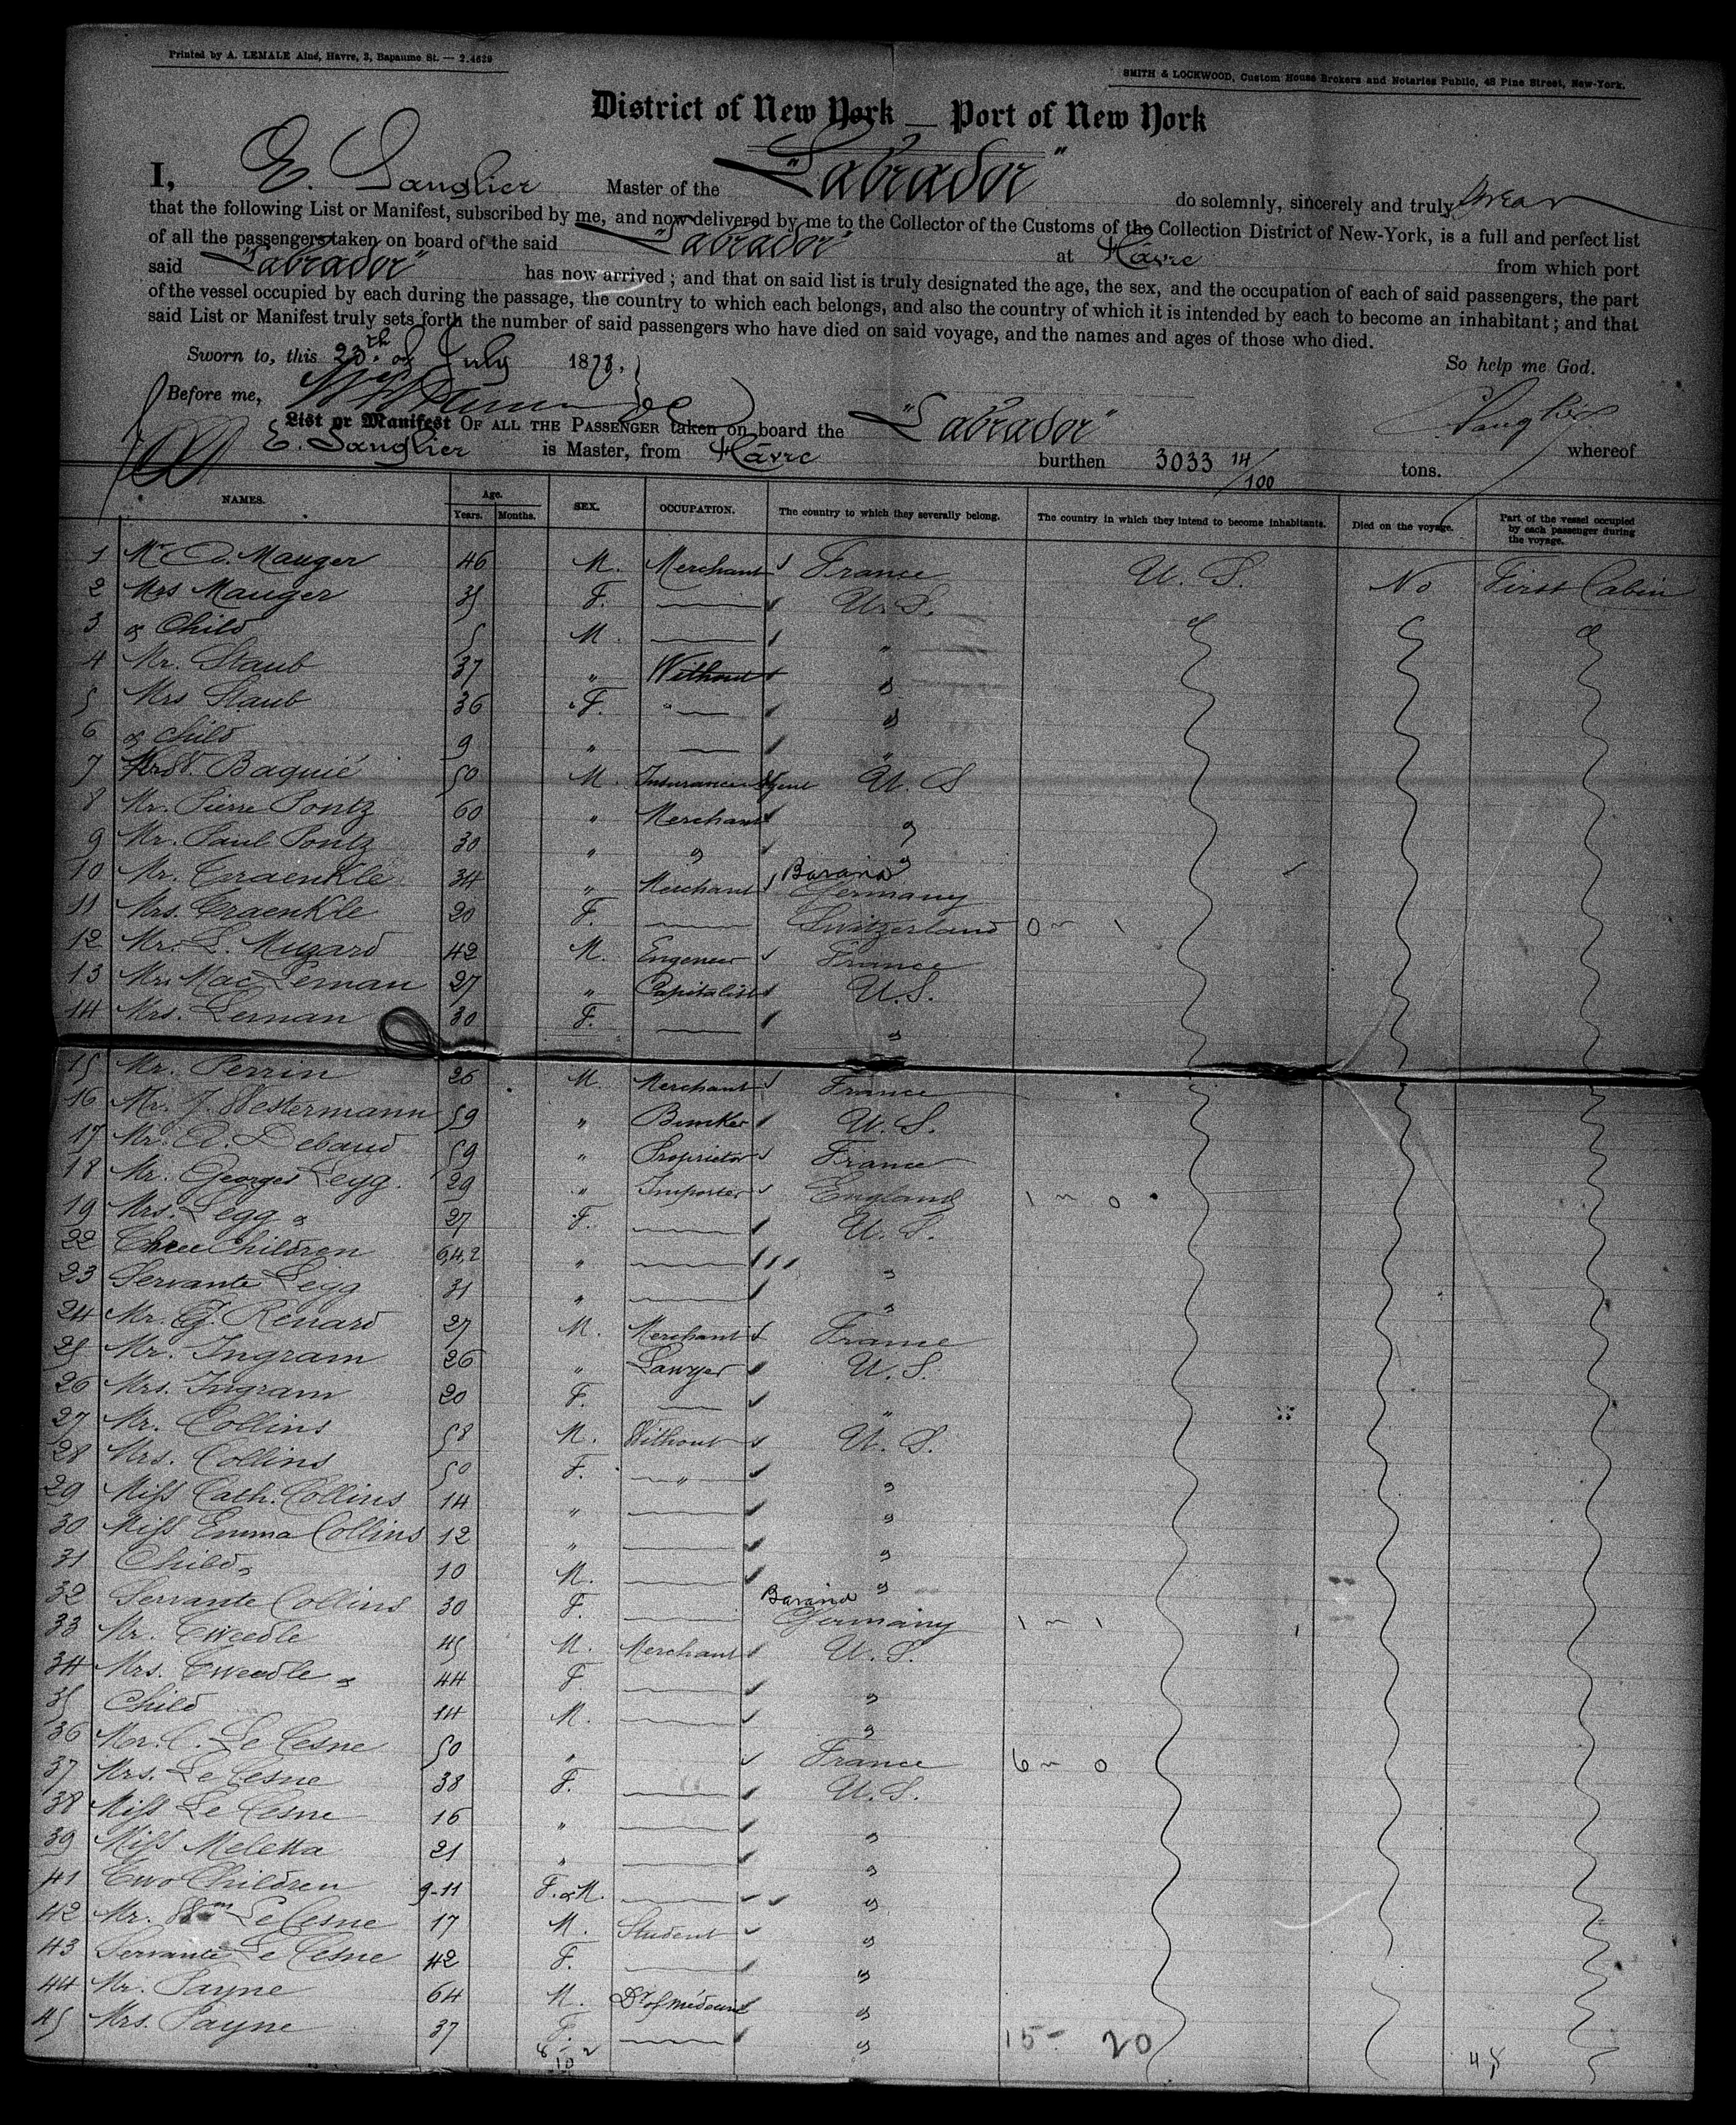 Printed by A. LEMALE Aîné, Havre, 3, Bapaume St. — 2.4629
SMITH & LOCKWOOD, Custom House Brokers and Notaries Public, 48 Pine Street, New-York.
District of New York — Port of New York
I, E. Sanglier Master of the "Labrador" do solemnly, sincerely and truly swear
that the following List or Manifest, subscribed by me, and now delivered by me to the Collector of the Customs of the Collection District of New-York, is a full and perfect list
of all the passengers taken on board of the said "Labrador" at Hâvre from which port
said "Labrador" has now arrived; and that on said list is truly designated the age, the sex, and the occupation of each of said passengers, the part
of the vessel occupied by each during the passage, the country to which each belongs, and also the country of which it is intended by each to become an inhabitant; and that
said List or Manifest truly sets forth the number of said passengers who have died on said voyage, and the names and ages of those who died.
Sworn to, this 23th of July 1878, So help me God.
Before me, Sanglier
List or Manifest OF ALL THE PASSENGER taken on board the "Labrador" whereof
E. Sanglier is Master, from Hâvre burthen 3033 14/100 tons.
NAMES. Age. Years. Months. SEX. OCCUPATION. The country to which they severally belong. The country in which they intend to become inhabitants. Died on the voyage. Part of the vessel occupied by each passenger during the voyage.
1 Mr. A. Mauger 46 M. Merchant France U. S. No First Cabin
2 Mrs Mauger 35 F. U. S.
3 & Child 5 M. "
4 Mr. Staub 37 " Without "
5 Mrs Staub 36 F. " "
6 & child 9 " "
7 Baquié 50 M. Insurance Agent U. S
8 Mr. Pierre Pontz 60 " Merchant "
9 Mr. Paul Pontz 30 " " "
10 Mr. Craenkle 34 " Merchant Germany
11 Mrs. Craenkle 20 F. Switzerland 0 1
12 Mr. L. Muzard 42 M. Engeneer France
13 Mr. Mac Lernan 27 " Capitalist U.S.
14 Mrs. Lernan 30 F. "
15 Mr. Perrin 26 M. Merchant France
16 Mr. J. Westermann 59 " Bunker U. S.
17 Mr. A. Debaud 59 " Proprietor France
18 Mr. Georges Legg. 29 " Importer England 1 0
19 Mrs. Legg & 27 F. U. S.
22 Three Children 6,4,2 " "
23 Servante Legg 31 " "
24 Mr. G. Renard 27 M. Merchant France
25 Mr. Ingram 26 " Lawyer U. S.
26 Mrs. Ingram 20 F. "
27 Mr. Collins 58 M. Without U. S.
28 Mrs. Collins 50 F. " "
29 Miss Cath. Collins 14 " "
30 Miss Emma Collins 12 " "
31 Child 10 M. "
32 Servante Collins 30 F. Germany 1 1
33 Mr. Tweedle 45 M. Merchant U. S.
34 Mrs. Tweedle & 44 F. "
35 Child 14 M. "
36 Mr. C. Le Cesne 50 " France 6 0
37 Mrs. Le Cesne 38 F. U. S.
38 Miss Le Cesne 16 " "
39 Miss Meletta 21 " "
41 Two Children 9-11 F. & M. "
42 Mr. Wm Le Cesne 17 M. Student "
43 Servante Le Cesne 42 F. "
44 Mr. Payne 64 M. Dr of médecine "
45 Mrs. Payne 37 F. "
15- 20